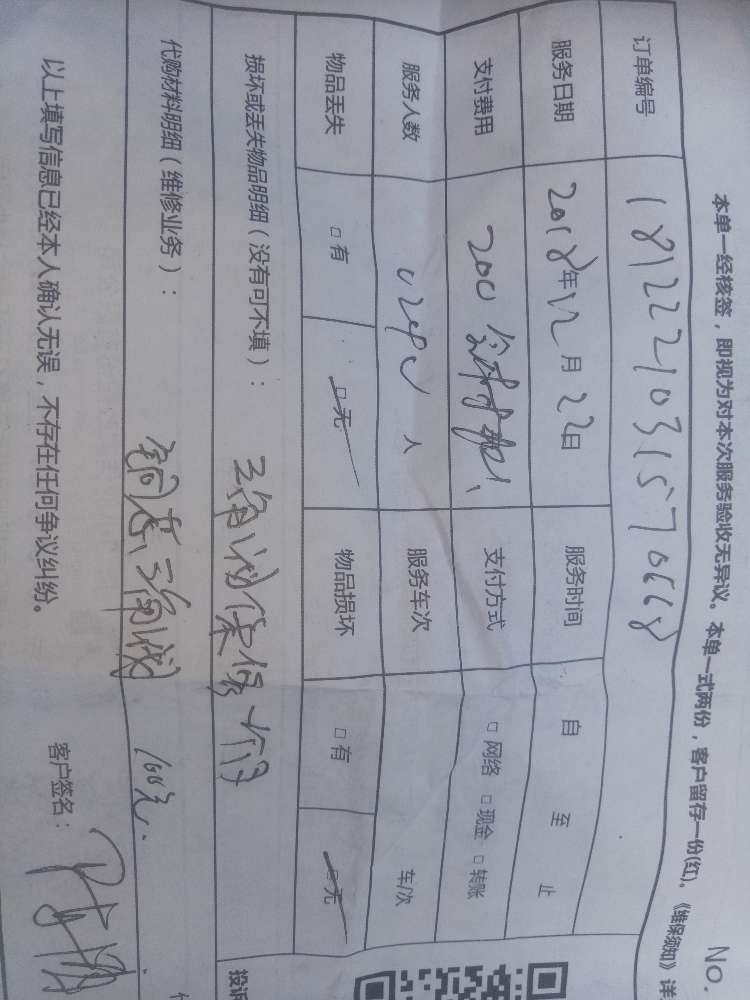 No.
本单一经核签，即视为对本次服务验收无异议。本单一式两份，客户留存一份(红)。《维保须知》详
订单编号 1812221031570668
服务日期 2018年12月22日 服务时间 自 至 止
支付费用 200 支付方式 □网络 □现金 □转账
服务人数 人 服务车次 车/次
物品丢失 □有 □无 物品损坏 □有 □无
损坏或丢失物品明细（没有可不填）： 三角阀保修一个月
代购材料明细（维修业务）： 铜芯三角阀 100元.
以上填写信息已经本人确认无误，不存在任何争议纠纷。 客户签名：
投诉